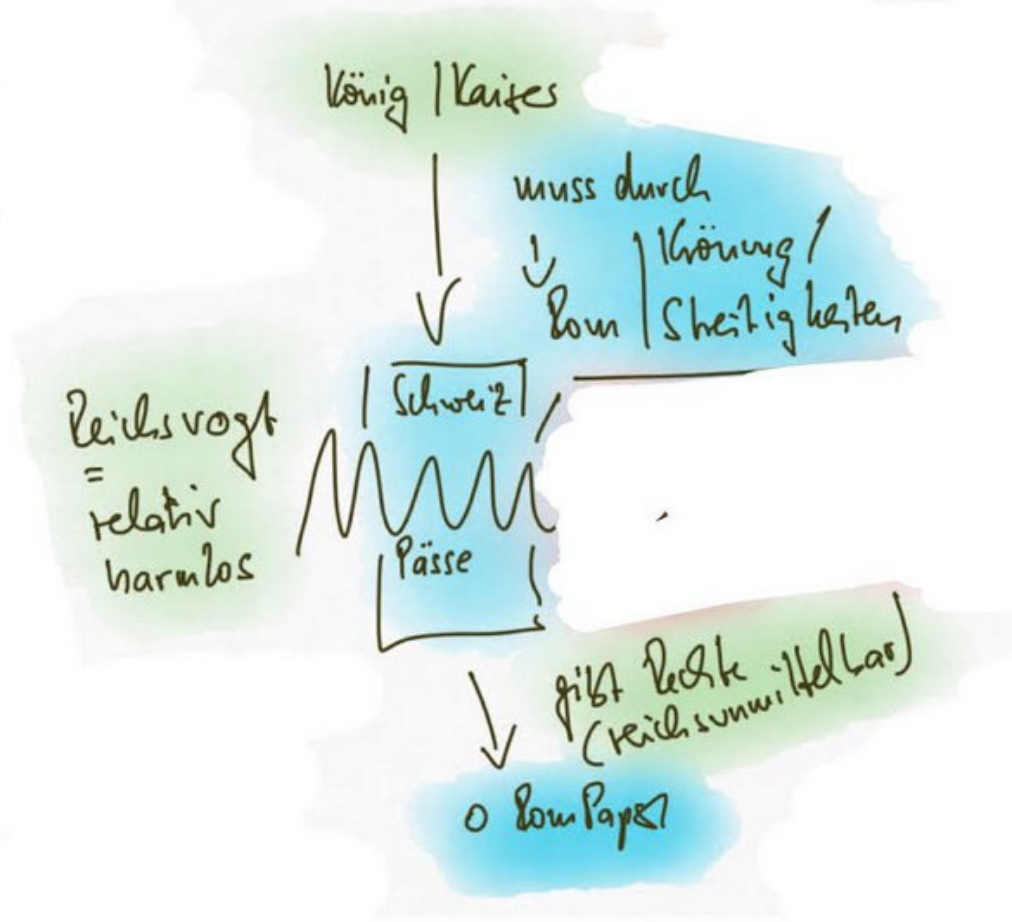 König / Kaiser
muss durch
Krönung /
Rom
Streitigkeiten
Schweiz
Reichsvogt
=
relativ
harmlos
Pässe
gibt Rechte
(reichsunmittelbar)
Rom Papst